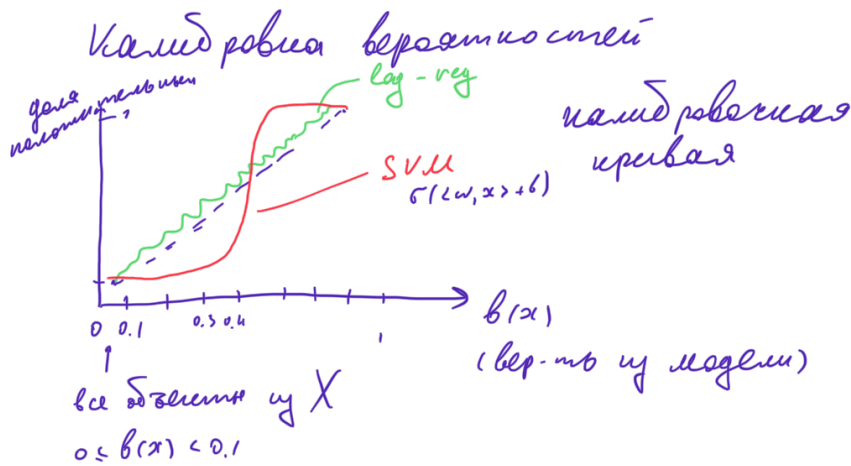 Калибровка вероятностей
доля
положительных
log-reg
1
калибровочная
кривая
SVM
σ(<w,x>+b)
0 0.1 0.3 0.4 1
b(x)
(вер-ть из модели)
все объекты из X
0 ≤ b(x) < 0.1